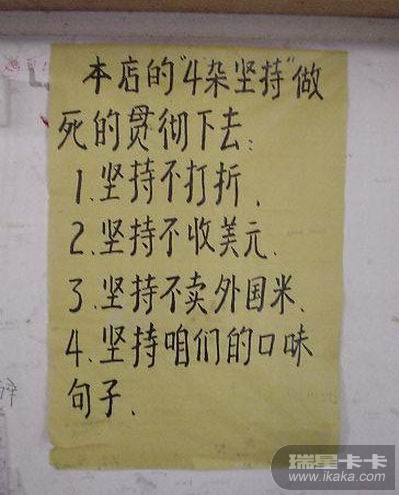 本店的"4杂坚持"做
死的贯彻下去:
1.坚持不打折.
2.坚持不收美元.
3.坚持不卖外国米.
4.坚持咱们的口味
句子.
瑞星卡卡
www.ikaka.com